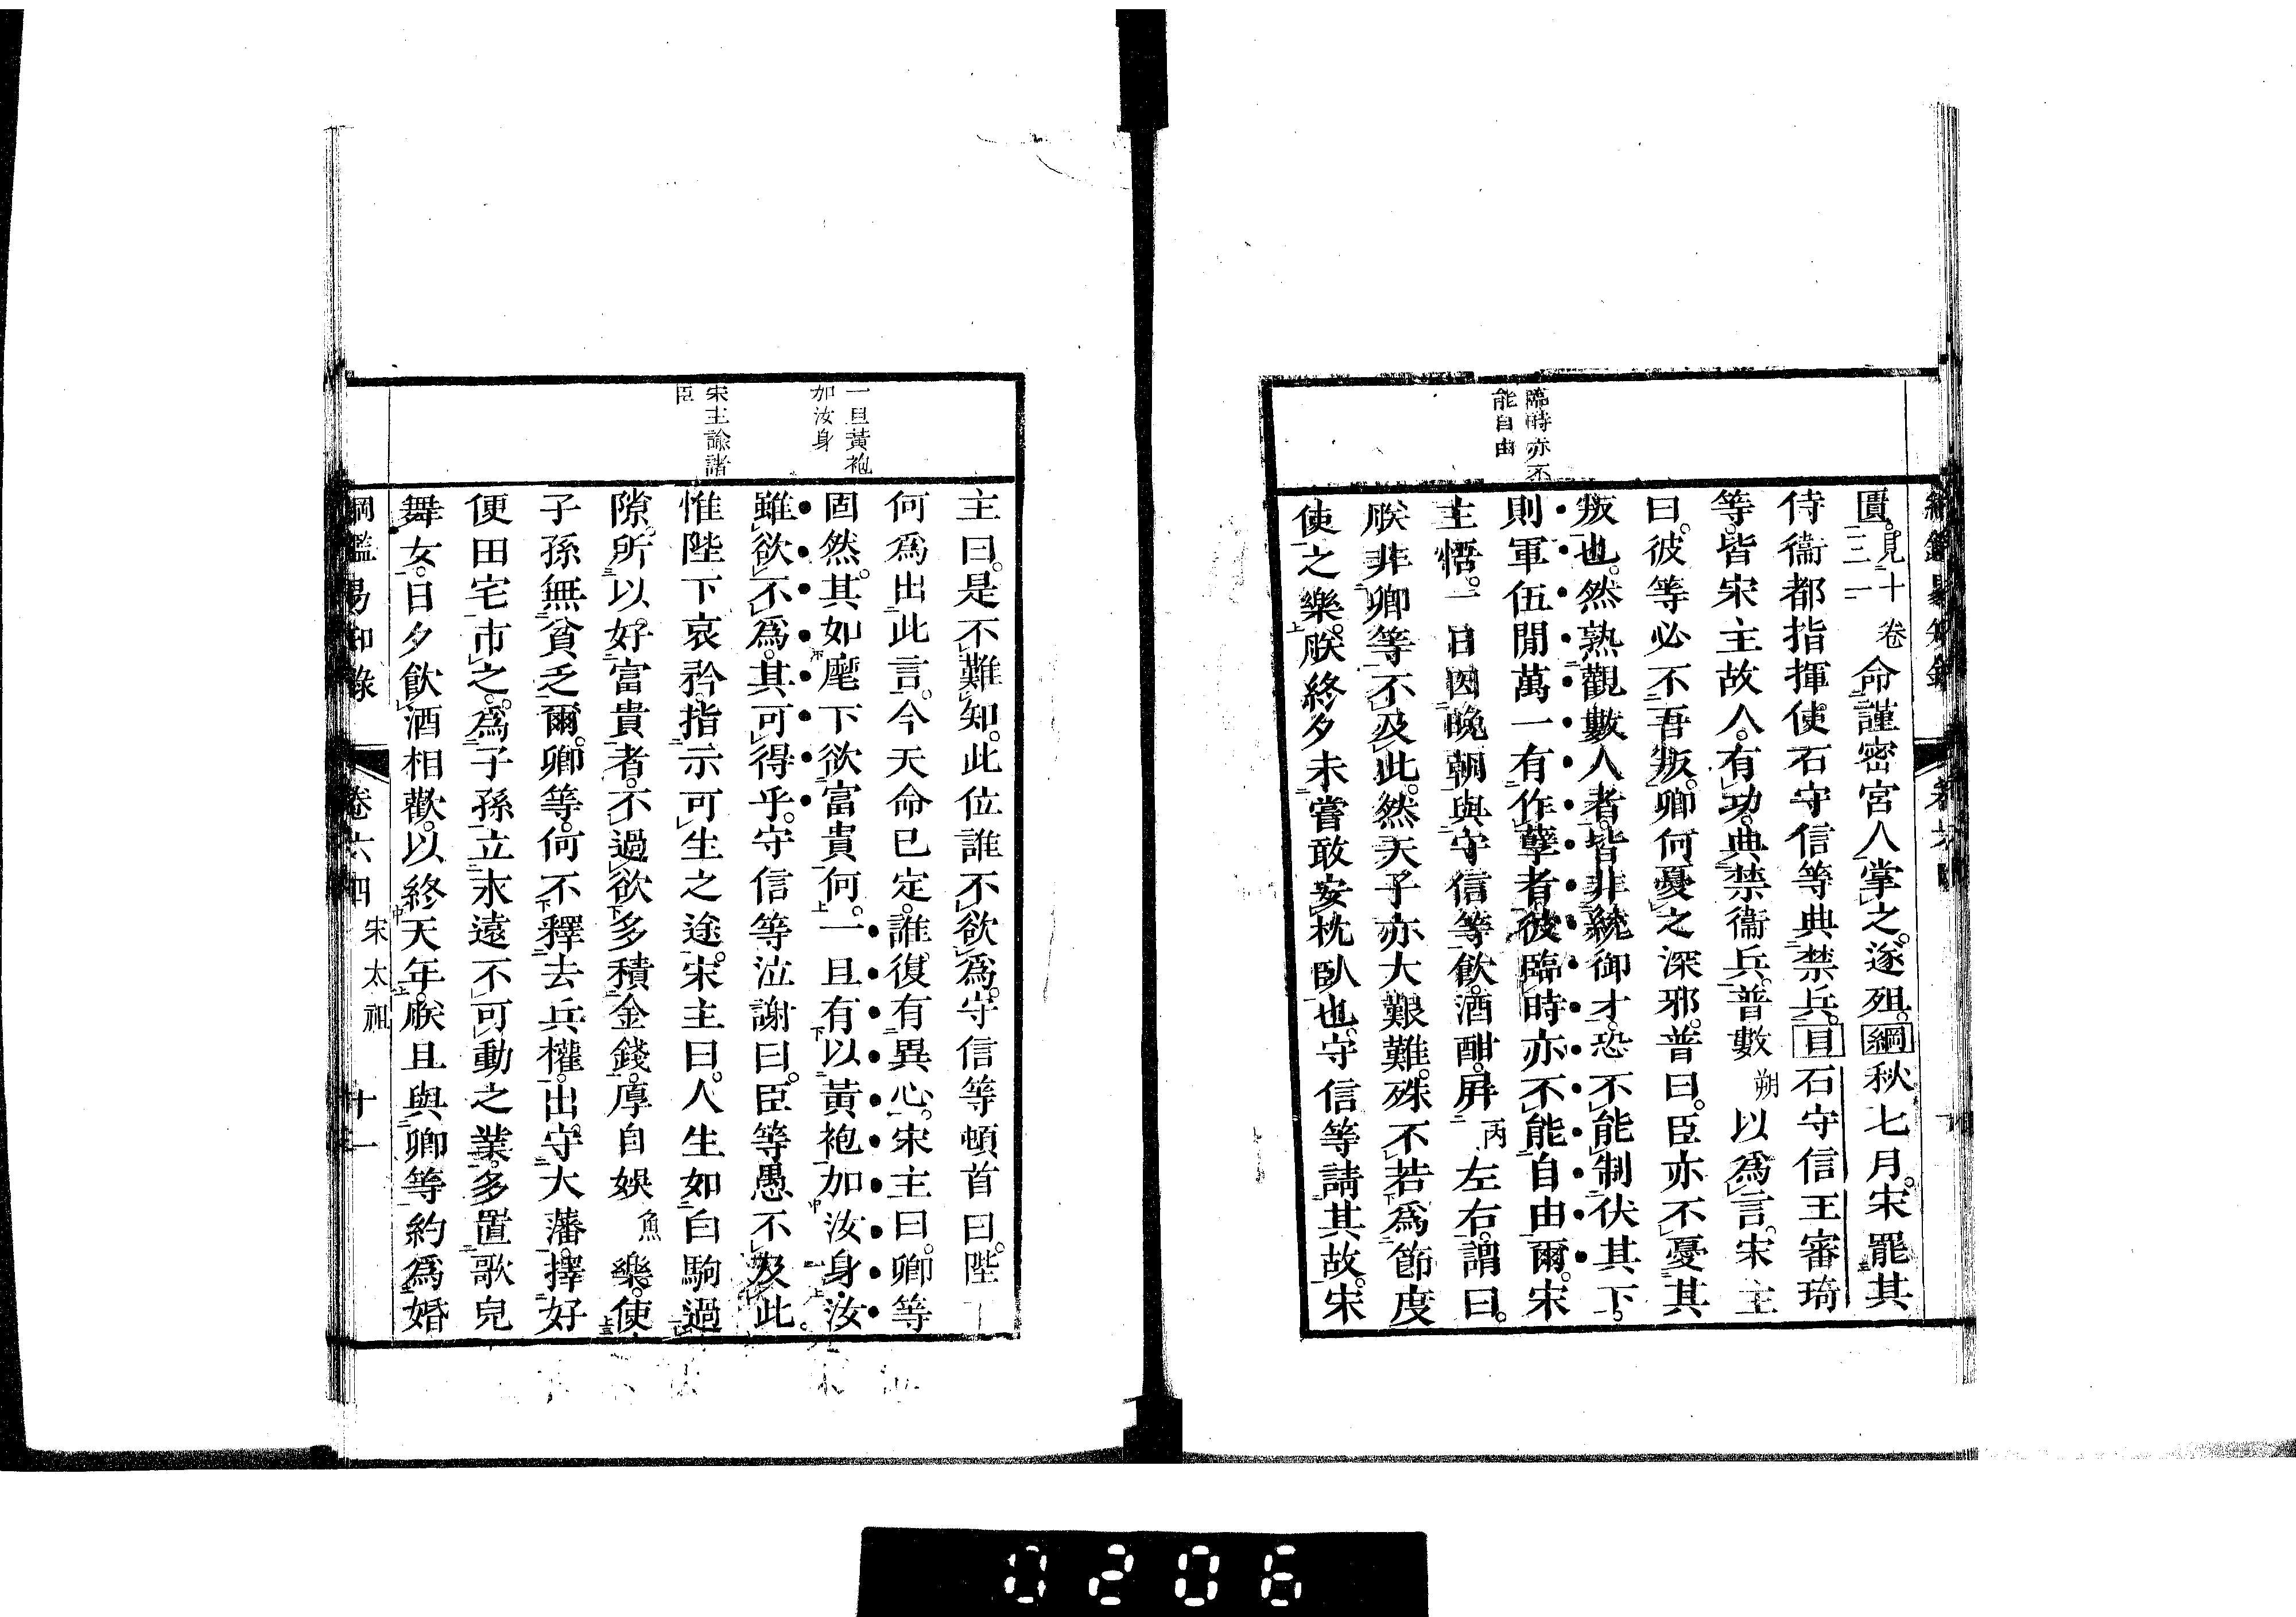 臨時亦不
能自由
匱。見十卷三一命謹密宮人掌之。遂殂。綱秋七月。宋罷其
侍衞都指揮使石守信等典禁兵。目石守信王審琦
等。皆宋主故人。有功。典禁衞兵。普數朔以爲言。宋主
曰。彼等必不吾叛。卿何憂之深邪。普曰。臣亦不憂其
叛也。然熟觀數人者。皆非統御才。恐不能制伏其下。
則軍伍閒萬一有作孽者。彼臨時亦不能自由爾。宋
主悟。一日因晚朝與守信等飲。酒酣。屏丙左右。謂曰。
朕非卿等不及此。然天子亦大艱難。殊不若爲節度
使之樂。朕終夕未嘗敢安枕臥也。守信等請其故。宋
一旦黃袍
加汝身
宋主諭諸
臣
主曰。是不難知。此位誰不欲爲。守信等頓首曰。陛下
何爲出此言。今天命已定。誰復有異心。宋主曰。卿等
固然。其如麾下欲富貴何。一旦有以黃袍加汝身。汝
雖欲不爲。其可得乎。守信等泣謝曰。臣等愚不及此。
惟陛下哀矜。指示可生之途。宋主曰。人生如白駒過
隙。所以好富貴者。不過欲多積金錢。厚自娛魚樂。使
子孫無貧乏爾。卿等何不釋去兵權。出守大藩。擇好
便田宅市之。爲子孫立永遠不可動之業。多置歌兒
舞女。日夕飲酒相歡。以終天年。朕且與卿等約爲婚
綱鑑易知錄 卷六四 宋太祖 十一
0206